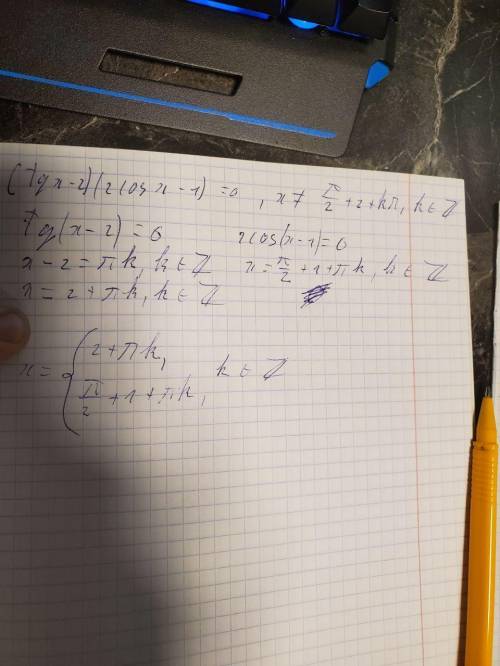 (tg x-2)(2cos x-1)=0, x≠ π/2+2+kπ, k∈ℤ
tg(x-2)=0 2cos(x-1)=0
x-2=πk, k∈ℤ x=π/2+1+πk, k∈ℤ
x=2+πk, k∈ℤ
x= { 2+πk,
π/2+1+πk, k∈ℤ